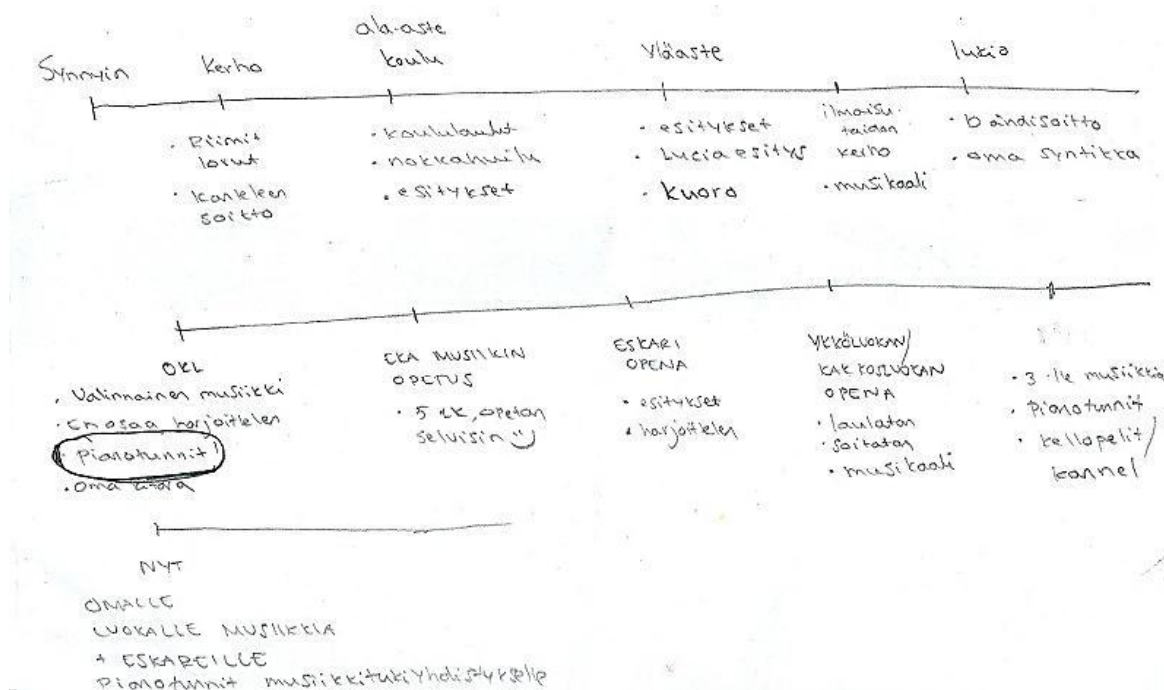 Synnyin
Kerho
ala-aste
koulu
Yläaste
lukio
• Riimit
lorut
• Kanteleen
soitto
• koululaulut
• nokkahuilu
• esitykset
• esitykset
• Lucia esitys
• kuoro
ilmaisu-
taidon
kerho
• musikaali
• bändisoitto
• oma syntikka
OKL
• Valinnainen musiikki
• En osaa harjoittelen
• Pianotunnit!
• Oma kitara
EKA MUSIIKIN
OPETUS
• 5 lk, opetan
selvisin
ESKARI
OPENA
• esitykset
• harjoittelen
YKKÖLUOKAN/
KAKKOSLUOKAN
OPENA
• laulatan
• soitatan
• musikaali
• 3-lk musiikkia
• Pianotunnit
• kellopelit/
kannel
NYT
OMALLE
LUOKALLE MUSIIKKIA
+ ESKAREILLE
Pianotunnit musiikkitukiyhdistykselle